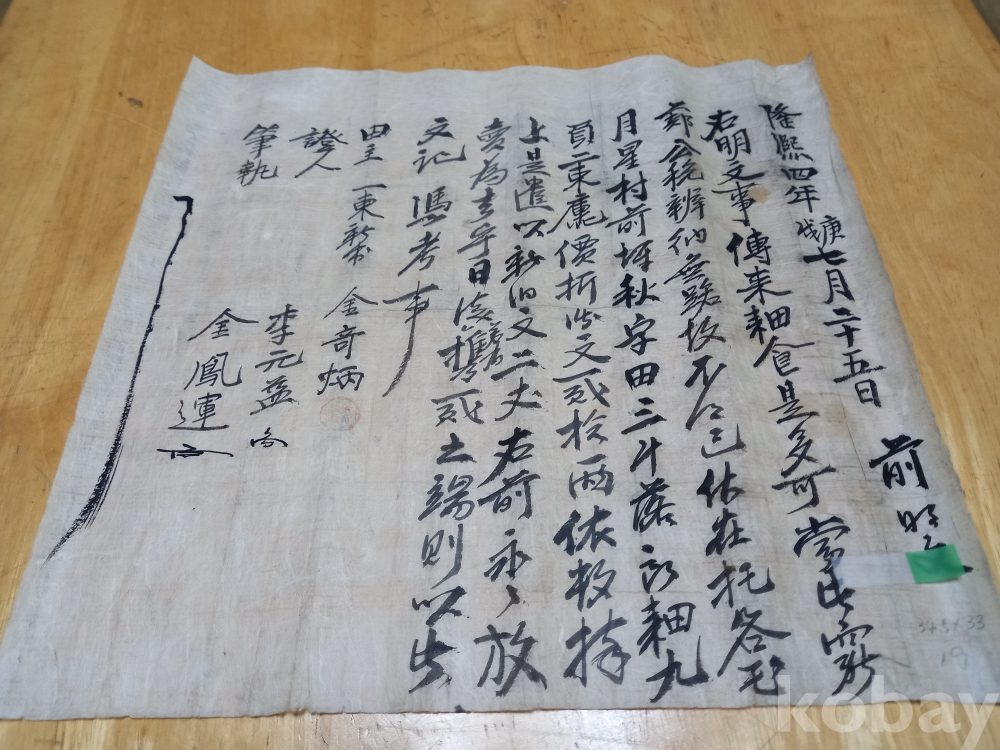 隆熙四年庚戌七月二十五日 前明
右明文事傳來耕食是多可當此窮
節公稅辨納無路故不得已伏在
月星村前坪秋字田三斗落 耕九
負 東 價折 文 拾兩依數捧
上是遣以新旧文二丈右前永永放
賣為去乎日後 或 之端則以此
文記憑考事
田主 東 金奇炳
證人 李元益
筆執 金鳳運
34.5 x 33
19
kobay